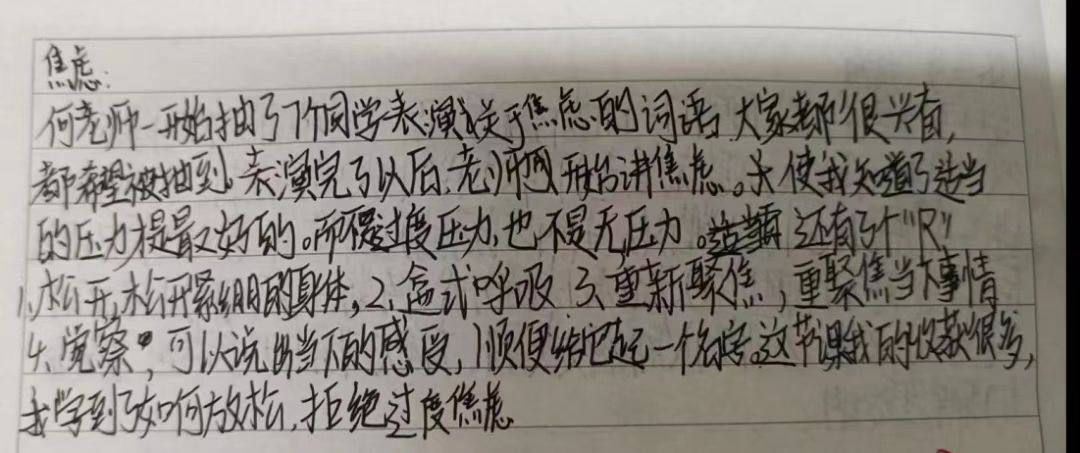 焦虑:
何老师一开始抽了7个同学表演关于焦虑的词语,大家都很兴奋,
都希望被抽到。表演完了以后,老师开始讲焦虑。使我知道了适当
的压力才是最好的。而不是过度压力,也不是无压力。还有3个“R”
1、松开,松开紧绷的身体,2、盒式呼吸 3、重新聚焦,重聚焦当下事情
4、觉察,可以说出当下的感受,顺便给它起一个名字。这节课我的收获很多,
我学到了如何放松,拒绝过度焦虑